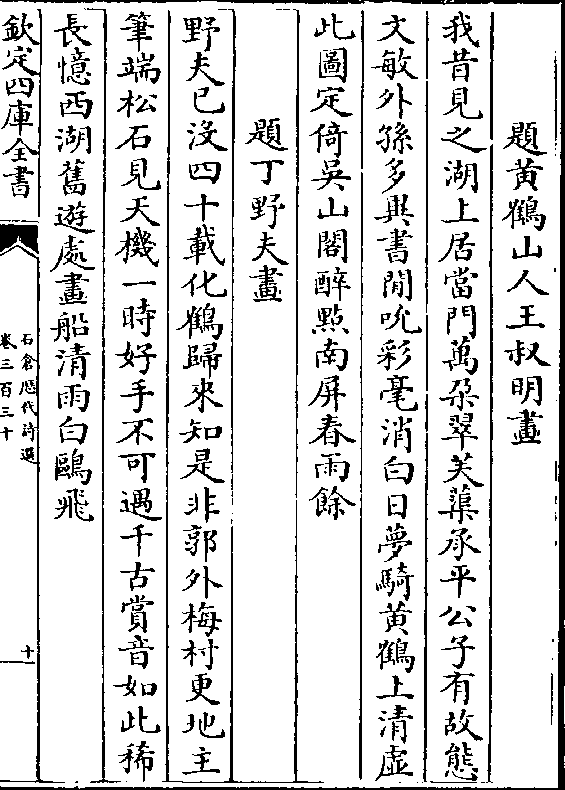 題黄鶴山人王叔明畫
我昔見之湖上居當門萬朶翠芙蕖承平公子有故態
文敏外孫多異書閒吮彩毫消白日夢騎黄鶴上清虛
此圖定倚吳山閣醉點南屏春雨餘
題丁野夫畫
野夫已沒四十載化鶴歸來知是非郭外梅村更地主
筆端松石見天機一時好手不可遇千古賞音如此稀
長憶西湖舊遊處畫船清雨白鷗飛
欽定四庫全書
石倉歷代詩選
卷三百三十
十